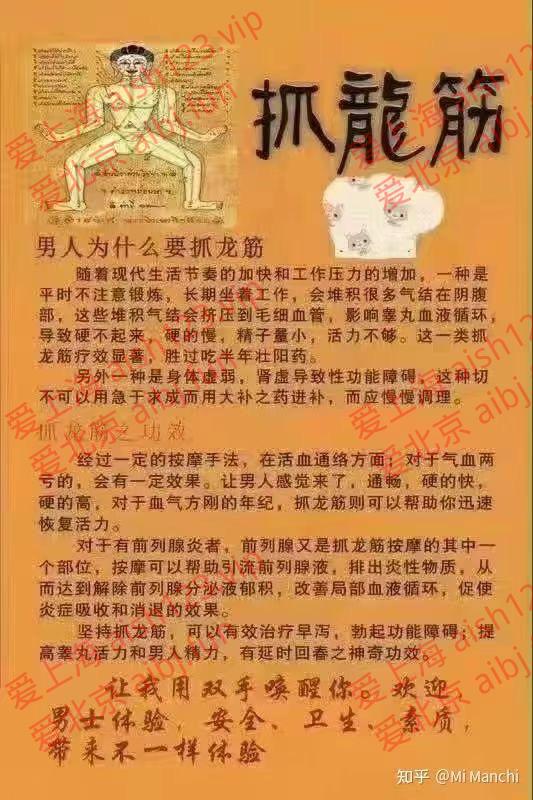 抓龍筋
男人为什么要抓龙筋
随着现代生活节奏的加快和工作压力的增加，一种是
平时不注意锻炼，长期坐着工作，会堆积很多气结在阴腹
部，这些堆积气结会挤压到毛细血管，影响睾丸血液循环，
导致硬不起来，硬的慢，精子量小，活力不够。这一类抓
龙筋疗效显著，胜过吃半年壮阳药。
另外一种是身体虚弱，肾虚导致性功能障碍，这种切
不可以用急于求成而用大补之药进补，而应慢慢调理。
抓龙筋之功效
经过一定的按摩手法，在活血通络方面，对于气血两
亏的，会有一定效果。让男人感觉来了，通畅，硬的快，
硬的高，对于血气方刚的年纪，抓龙筋则可以帮助你迅速
恢复活力。
对于有前列腺炎者，前列腺又是抓龙筋按摩的其中一
个部位，按摩可以帮助引流前列腺液，排出炎性物质，从
而达到解除前列腺分泌液郁积，改善局部血液循环，促使
炎症吸收和消退的效果。
坚持抓龙筋，可以有效治疗早泄，勃起功能障碍；提
高睾丸活力和男人精力，有延时回春之神奇功效。
让我用双手唤醒你。欢迎，
男士体验，安全、卫生、素质，
带来不一样体验
爱上海 aish123.vip
爱北京 aibj
知乎 @Mi Manchi